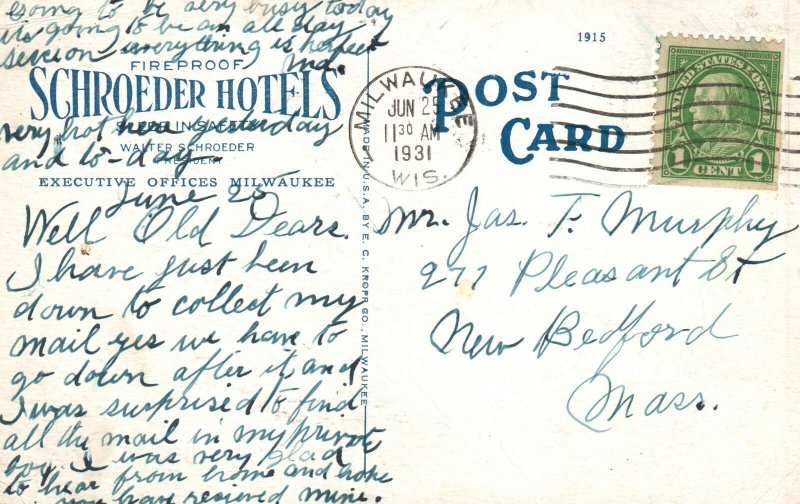 esoing to be very busy today
its going to be an all day
session everything is perfect
Ma.
FIREPROOF
SCHROEDER HOTELS
SLEEP IN SAFETY
very hot here yesterday
WALTER SCHROEDER
PRESIDENT
and to-day
EXECUTIVE OFFICES MILWAUKEE
June 25
Well Old Dears.
I have just been
down to collect my
mail yes we have to
go down after it and
I was surprised to find
all the mail in my private
boy. I was very glad
to hear from home and hope
you have recieved mine.
MADE IN U.S.A. BY E. C. KROPP CO., MILWAUKEE
1915
POST
CARD
MILWAUKEE
JUN 25
11 30 AM
1931
WIS.
UNITED STATES POSTAGE
1 CENT 1
Mr. Jas. T. Murphy
277 Pleasant St
New Bedford
Mass.